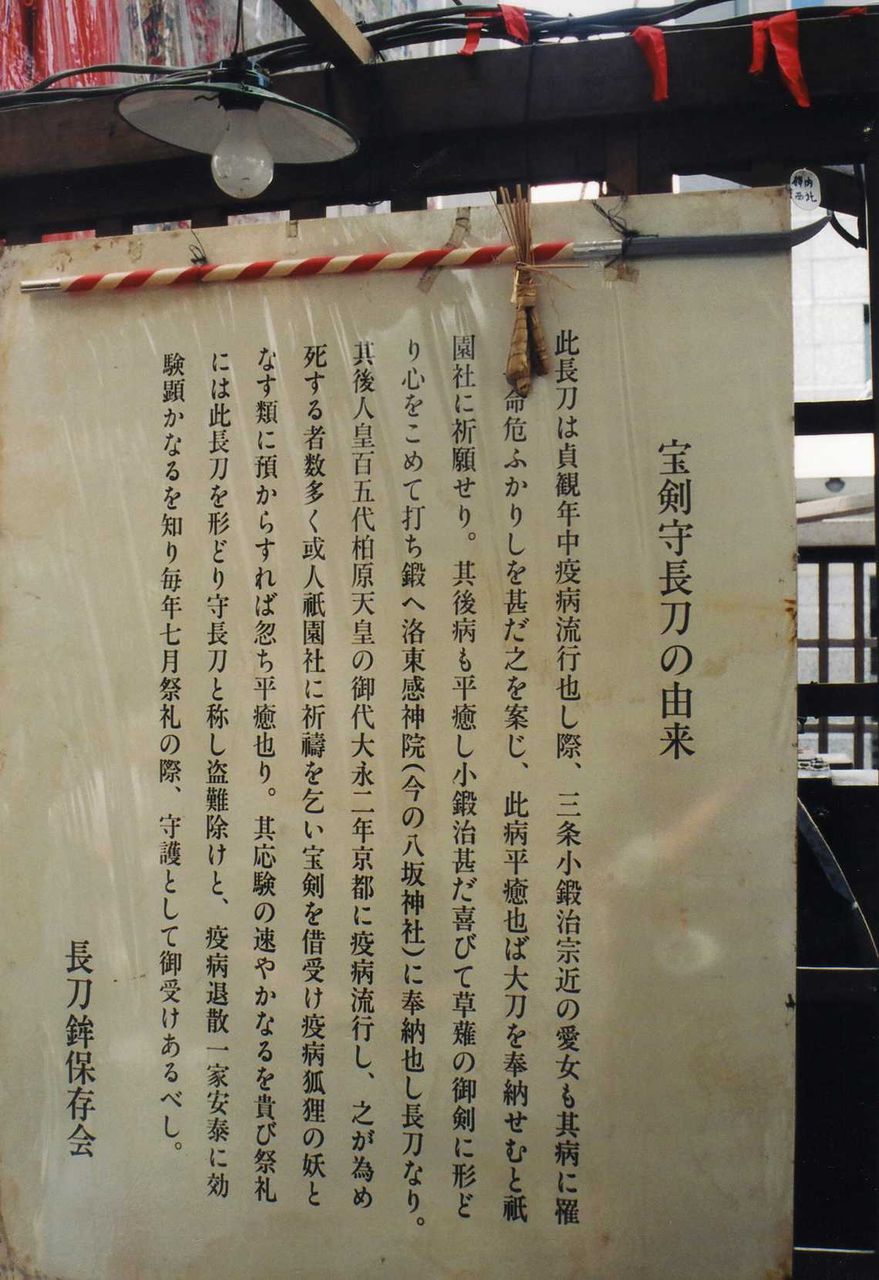 宝剣守長刀の由来
此長刀は貞観年中疫病流行也し際、三条小鍛治宗近の愛女も其病に罹
命危ふかりしを甚だ之を案じ、此病平癒也ば大刀を奉納せむと祇
園社に祈願せり。其後病も平癒し小鍛治甚だ喜びて草薙の御剣に形ど
り心をこめて打ち鍛へ洛東感神院(今の八坂神社)に奉納也し長刀なり。
其後人皇百五代柏原天皇の御代大永二年京都に疫病流行し、之が為め
死する者数多く或人祇園社に祈禱を乞い宝剣を借受け疫病狐狸の妖と
なす類に預からすれば忽ち平癒也り。其応験の速やかなるを貴び祭礼
には此長刀を形どり守長刀と称し盗難除けと、疫病退散一家安泰に効
験顕かなるを知り毎年七月祭礼の際、守護として御受けあるべし。
長刀鉾保存会